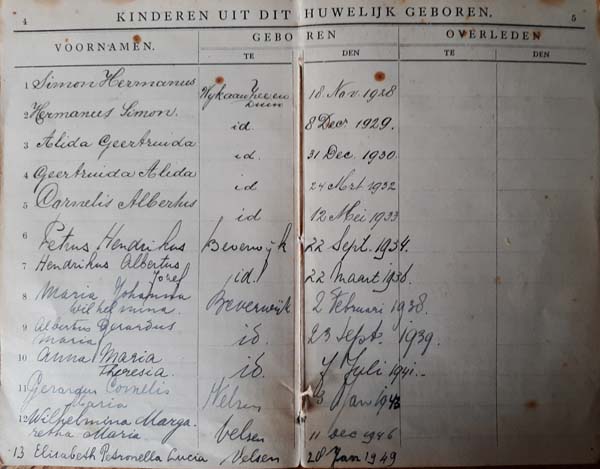 4 KINDEREN UIT DIT HUWELIJK GEBOREN. 5
VOORNAMEN. GEBOREN OVERLEDEN
TE DEN TE DEN
1 Simon Hermanus Wijk aan Zee en Duin 18 Nov. 1928
2 Hermanus Simon. id. 8 Decr 1929.
3 Alida Geertruida id. 31 Dec. 1930.
4 Geertruida Alida id 24 Mrt 1932
5 Cornelis Albertus id 12 Mei 1933
6 Petrus Hendrikus Beverwijk 22 Sept. 1934.
7 Hendrikus Albertus
Jozef id. 22 maart 1936.
8 Maria Johanna
Wilhelmina. Beverwijk 2 Februari 1938.
9 Albertus Gerardus
Maria id. 23 Sept. 1939.
10 Anna Maria
Theresia. id. 7 Juli 1941.
11 Gerardus Cornelis
Maria Velsen Jan 1943
12 Wilhelmina Marga
retha Maria Velsen 11 dec 1946
13 Elisabeth Petronella Lucia Velsen 28 Jan 1949